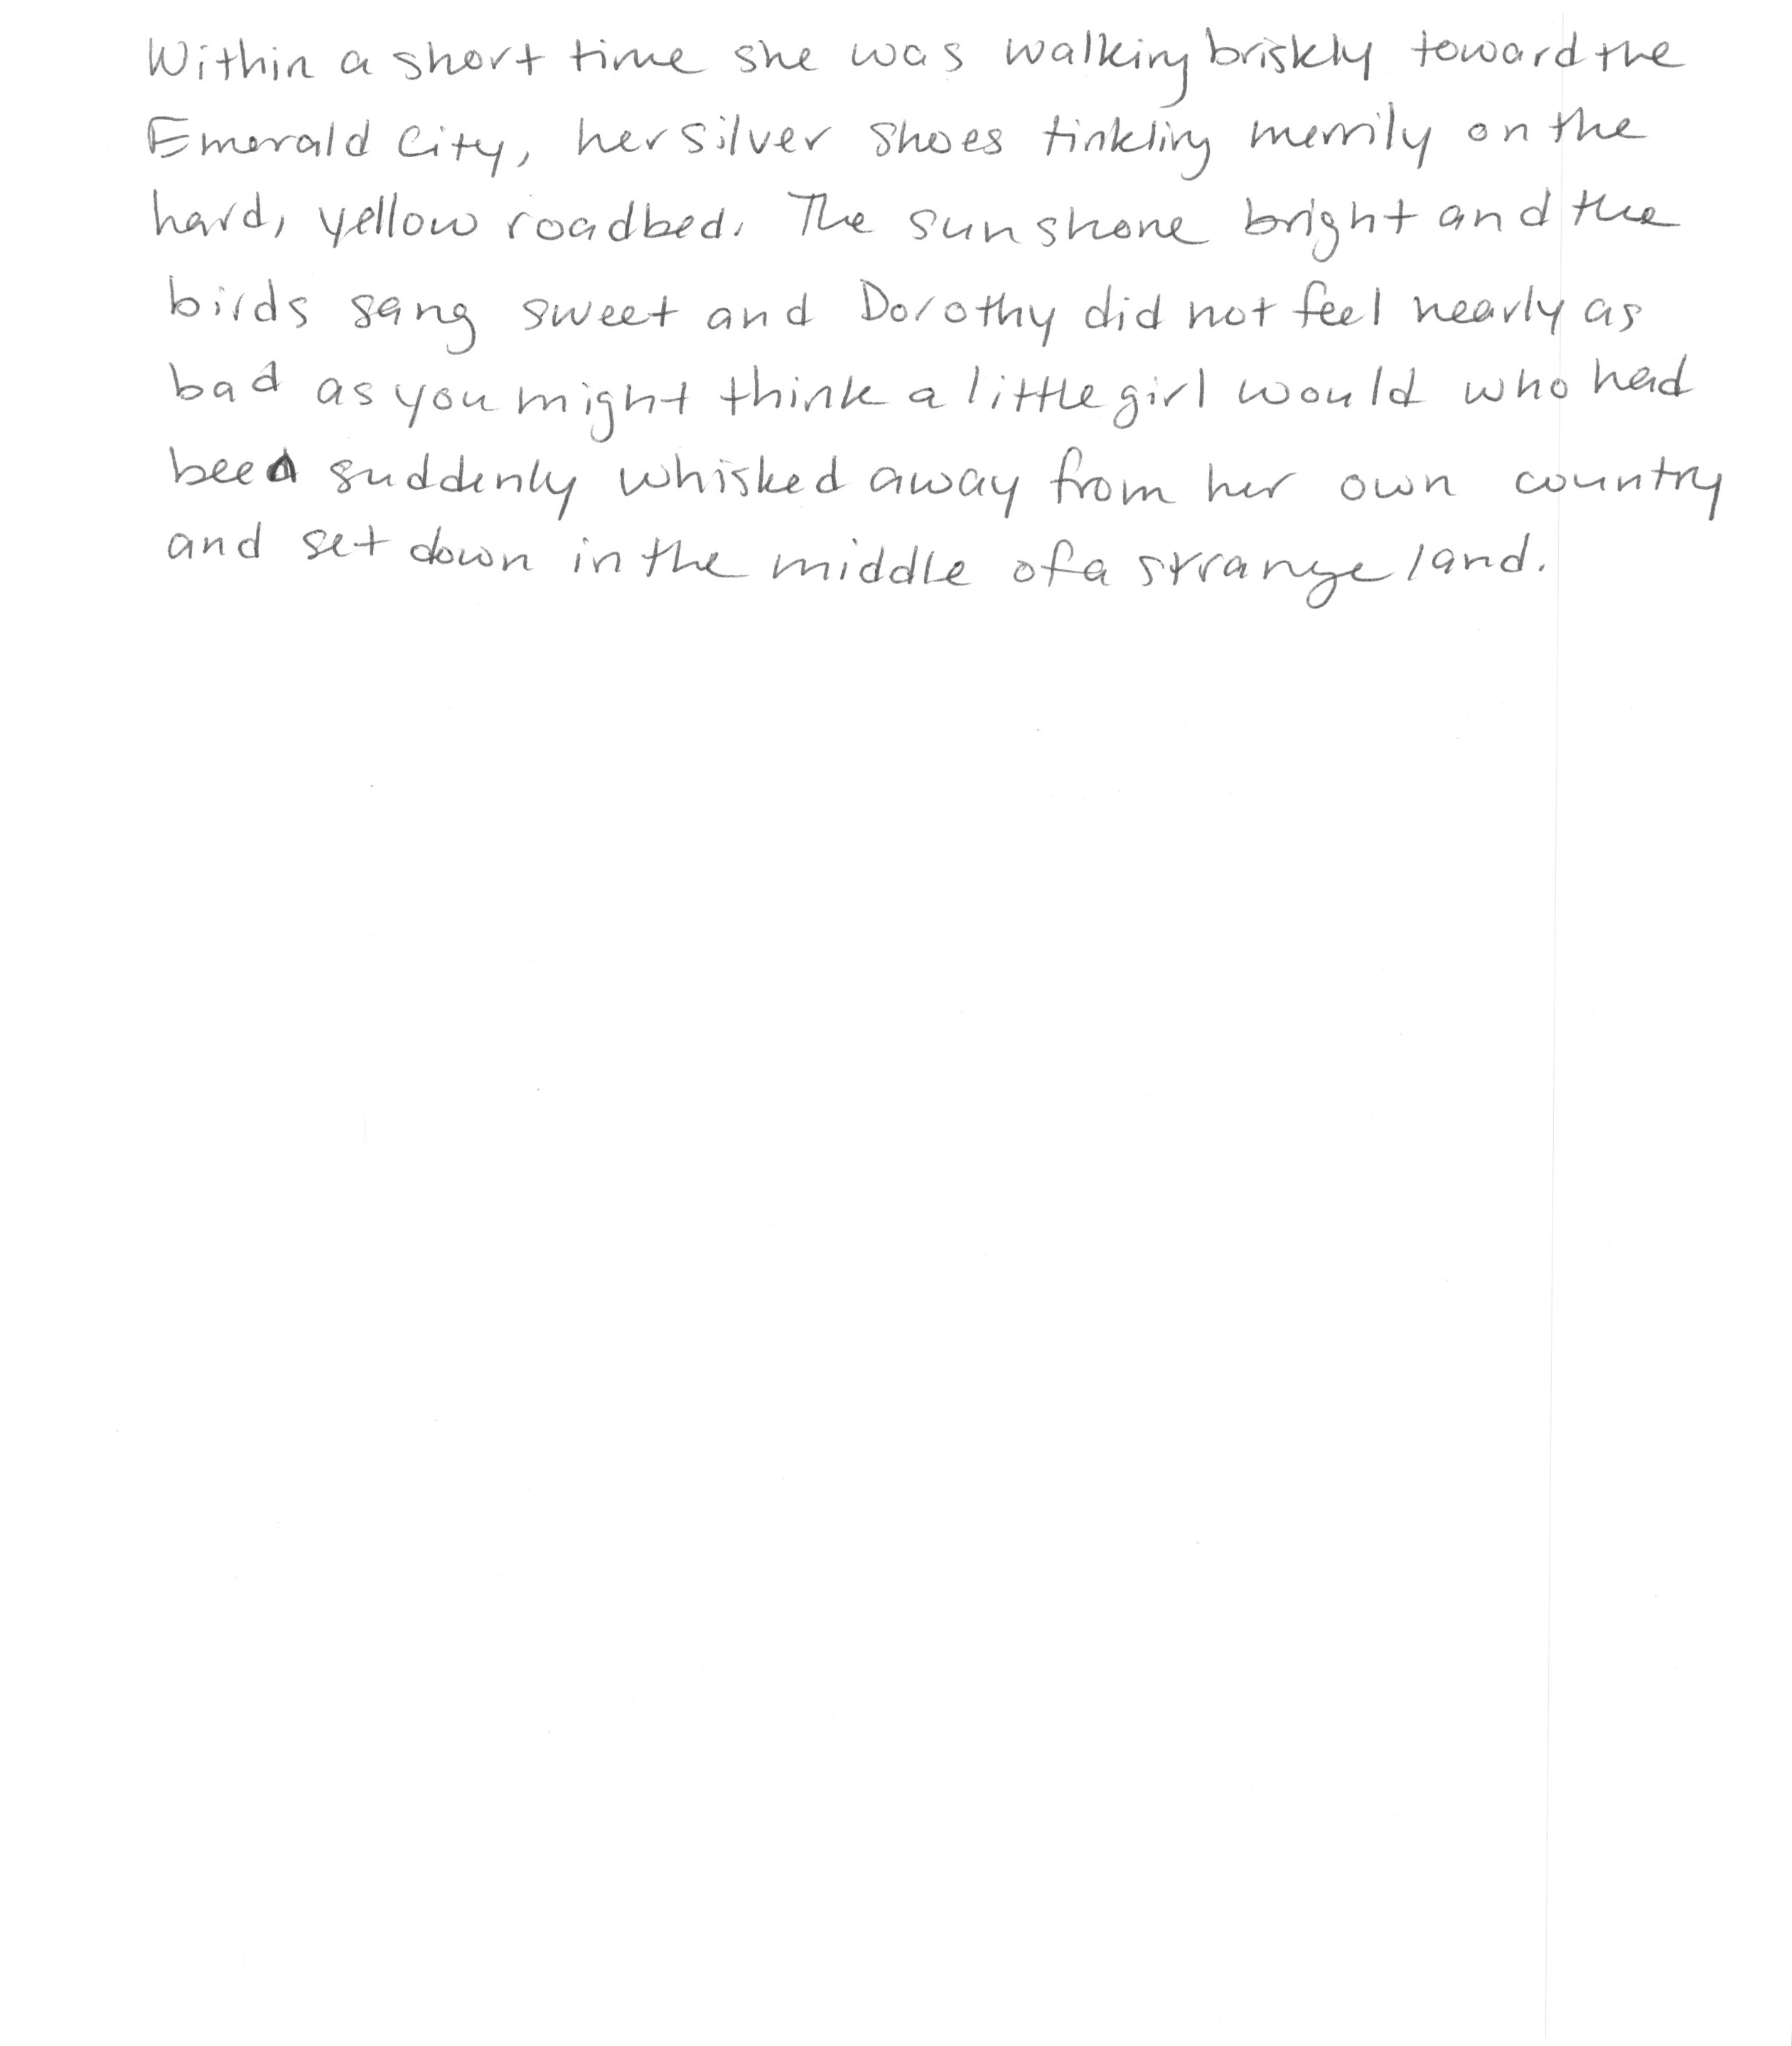 Within a short time she was walking briskly toward the
Emerald City, her silver shoes tinkling merrily on the
hard, yellow roadbed. The sun shone bright and the
birds sang sweet and Dorothy did not feel nearly as
bad as you might think a little girl would who had
been suddenly whisked away from her own country
and set down in the middle of a strange land.